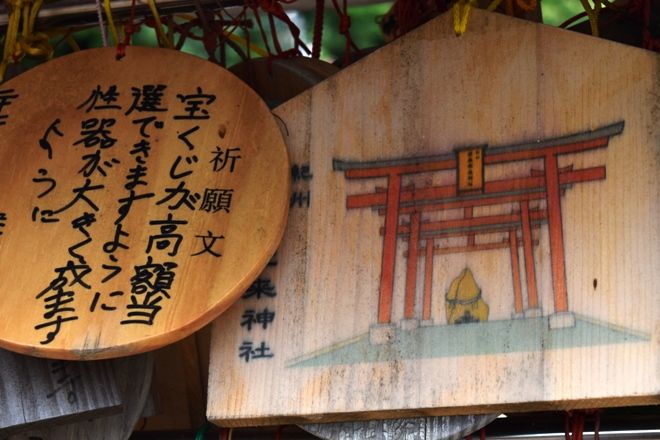 祈願文
宝くじが高額当
選できますように
性器が大きく成ます
ように
紀州
来神社